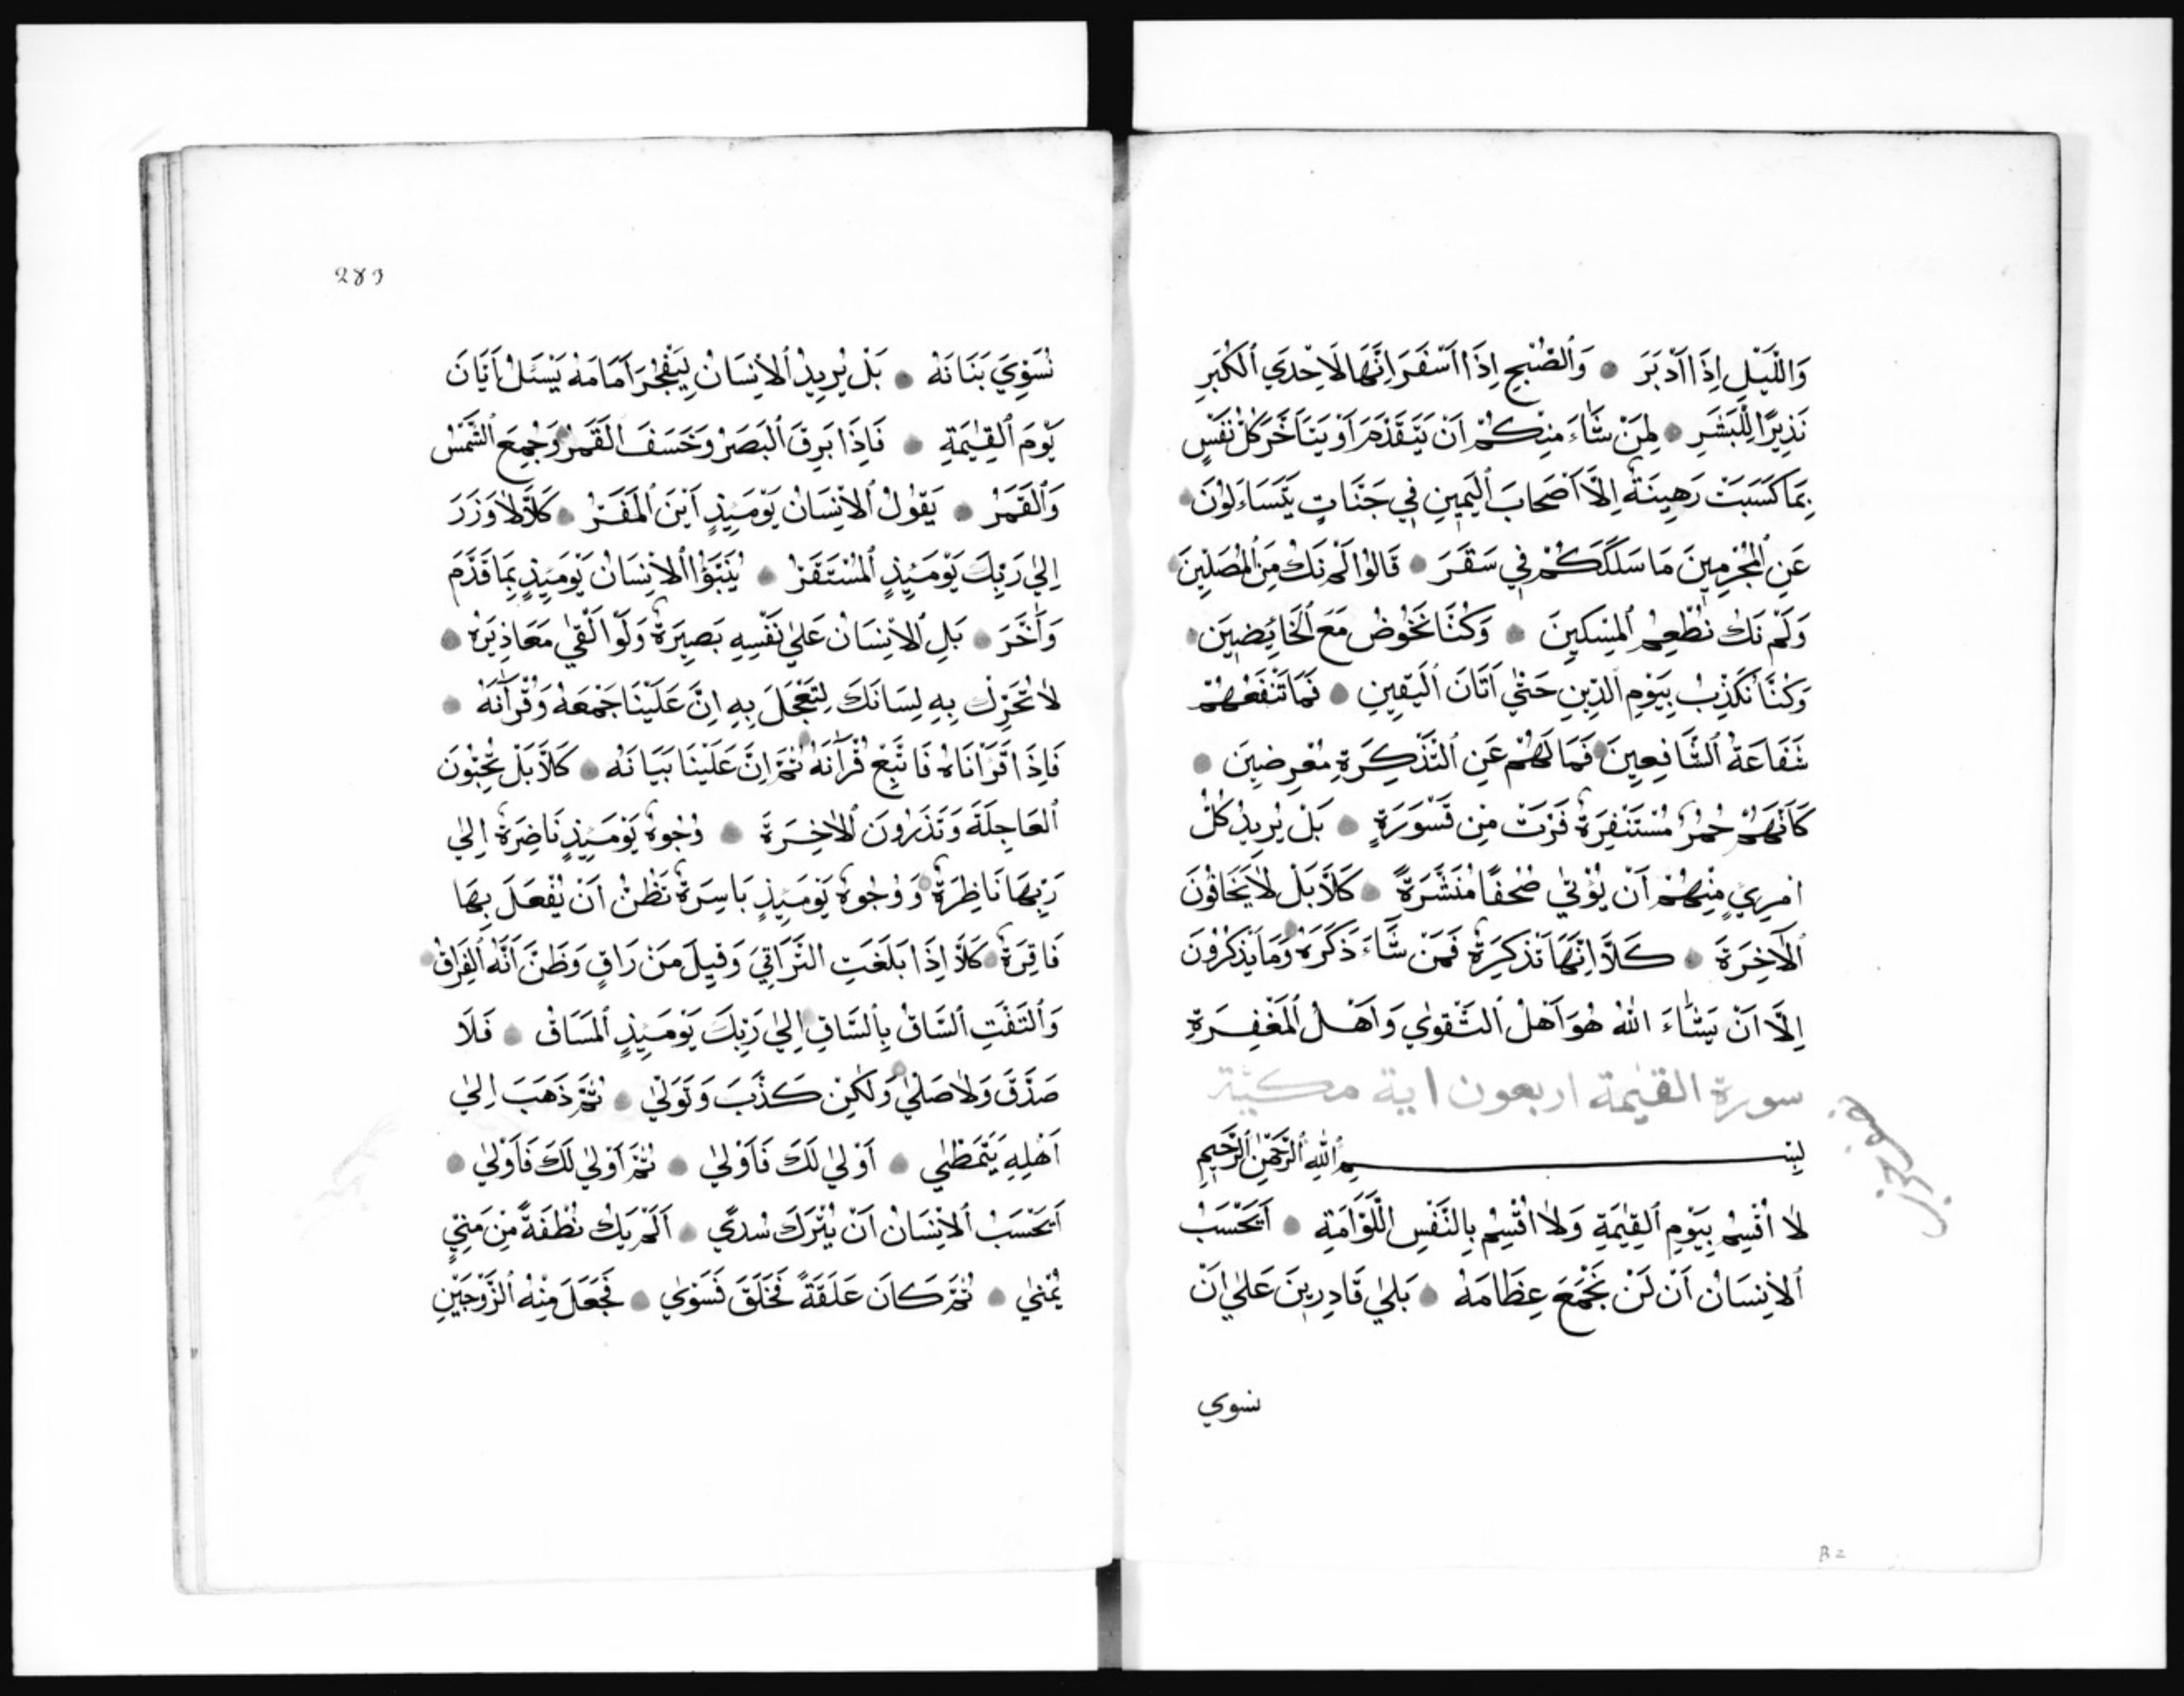 وَاللَّيْلِ اِذَا اَدْبَرَ ۝ وَالصُّبْحِ اِذَا اَسْفَرَ اِنَّهَا لَاِحْدَي الْكُبَرِ
نَذِيرًا لِلْبَشَرِ ۝ لِمَنْ شَاءَ مِنْكُمْ اَنْ يَتَقَدَّمَ اَوْ يَتَاَخَّرَ كُلُّ نَفْسٍ
بِمَا كَسَبَتْ رَهِينَةٌ اِلَّا اَصْحَابَ الْيَمِينِ فِي جَنَّاتٍ يَتَسَاءَلُونَ ۝
عَنِ الْمُجْرِمِينَ مَا سَلَكَكُمْ فِي سَقَرَ ۝ قَالُوا لَمْ نَكُ مِنَ الْمُصَلِّينَ ۝
وَلَمْ نَكُ نُطْعِمُ الْمِسْكِينَ ۝ وَكُنَّا نَخُوضُ مَعَ الْخَائِضِينَ ۝
وَكُنَّا نُكَذِّبُ بِيَوْمِ الدِّينِ حَتّٰي اَتَانَ الْيَقِينِ ۝ فَمَا تَنْفَعُهُمْ
شَفَاعَةُ الشَّافِعِينَ ۝ فَمَا لَهُمْ عَنِ التَّذْكِرَةِ مُعْرِضِينَ ۝
كَاَنَّهُمْ حُمُرٌ مُسْتَنْفِرَةٌ فَرَّتْ مِنْ قَسْوَرَةٍ ۝ بَلْ يُرِيدُ كُلُّ
امْرِيٍ مِنْهُمْ اَنْ يُؤْتٰي صُحُفًا مُنَشَّرَةً ۝ كَلَّا بَلْ لَا يَخَافُونَ
الْاٰخِرَةَ ۝ كَلَّا اِنَّهَا تَذْكِرَةٌ فَمَنْ شَاءَ ذَكَرَهُ ۝ وَمَا يَذْكُرُونَ
اِلَّا اَنْ يَشَاءَ اللّٰهُ هُوَ اَهْلُ التَّقْوٰي وَاَهْلُ الْمَغْفِرَةِ
سورة القيٰمة اربعون اية مكيّة
بِسْمِ اللّٰهِ الرَّحْمٰنِ الرَّحِيمِ
لَا اُقْسِمُ بِيَوْمِ الْقِيٰمَةِ وَلَا اُقْسِمُ بِالنَّفْسِ اللَّوَّامَةِ ۝ اَيَحْسَبُ
الْاِنْسَانُ اَنْ لَنْ نَجْمَعَ عِظَامَهُ ۝ بَلٰي قَادِرِينَ عَلٰي اَنْ
نسوي
283
نُسَوِّيَ بَنَانَهُ ۝ بَلْ يُرِيدُ الْاِنْسَانُ لِيَفْجُرَ اَمَامَهُ يَسْئَلُ اَيَّانَ
يَوْمَ الْقِيٰمَةِ ۝ فَاِذَا بَرِقَ الْبَصَرُ وَخَسَفَ الْقَمَرُ ۝ وَجُمِعَ الشَّمْسُ
وَالْقَمَرُ ۝ يَقُولُ الْاِنْسَانُ يَوْمَئِذٍ اَيْنَ الْمَفَرُّ ۝ كَلَّا لَا وَزَرَ
اِلٰي رَبِّكَ يَوْمَئِذٍ الْمُسْتَقَرُّ ۝ يُنَبَّؤُا الْاِنْسَانُ يَوْمَئِذٍ بِمَا قَدَّمَ
وَاَخَّرَ ۝ بَلِ الْاِنْسَانُ عَلٰي نَفْسِهِ بَصِيرَةٌ وَلَوْ اَلْقٰي مَعَاذِيرَهُ ۝
لَا تُحَرِّكْ بِهِ لِسَانَكَ لِتَعْجَلَ بِهِ اِنَّ عَلَيْنَا جَمْعَهُ وَقُرْاٰنَهُ ۝
فَاِذَا قَرَاْنَاهُ فَاتَّبِعْ قُرْاٰنَهُ ۝ ثُمَّ اِنَّ عَلَيْنَا بَيَانَهُ ۝ كَلَّا بَلْ تُحِبُّونَ
الْعَاجِلَةَ وَتَذَرُونَ الْاٰخِرَةَ ۝ وُجُوهٌ يَوْمَئِذٍ نَاضِرَةٌ اِلٰي
رَبِّهَا نَاظِرَةٌ ۝ وَوُجُوهٌ يَوْمَئِذٍ بَاسِرَةٌ تَظُنُّ اَنْ يُفْعَلَ بِهَا
فَاقِرَةٌ ۝ كَلَّا اِذَا بَلَغَتِ التَّرَاقِيَ وَقِيلَ مَنْ رَاقٍ وَظَنَّ اَنَّهُ الْفِرَاقُ ۝
وَالْتَفَّتِ السَّاقُ بِالسَّاقِ ۝ اِلٰي رَبِّكَ يَوْمَئِذٍ الْمَسَاقُ ۝ فَلَا
صَدَّقَ وَلَا صَلّٰي ۝ وَلٰكِنْ كَذَّبَ وَتَوَلّٰي ۝ ثُمَّ ذَهَبَ اِلٰي
اَهْلِهِ يَتَمَطّٰي ۝ اَوْلٰي لَكَ فَاَوْلٰي ۝ ثُمَّ اَوْلٰي لَكَ فَاَوْلٰي ۝
اَيَحْسَبُ الْاِنْسَانُ اَنْ يُتْرَكَ سُدًي ۝ اَلَمْ يَكُ نُطْفَةً مِنْ مَنِيٍّ
يُمْنٰي ۝ ثُمَّ كَانَ عَلَقَةً فَخَلَقَ فَسَوّٰي ۝ فَجَعَلَ مِنْهُ الزَّوْجَيْنِ